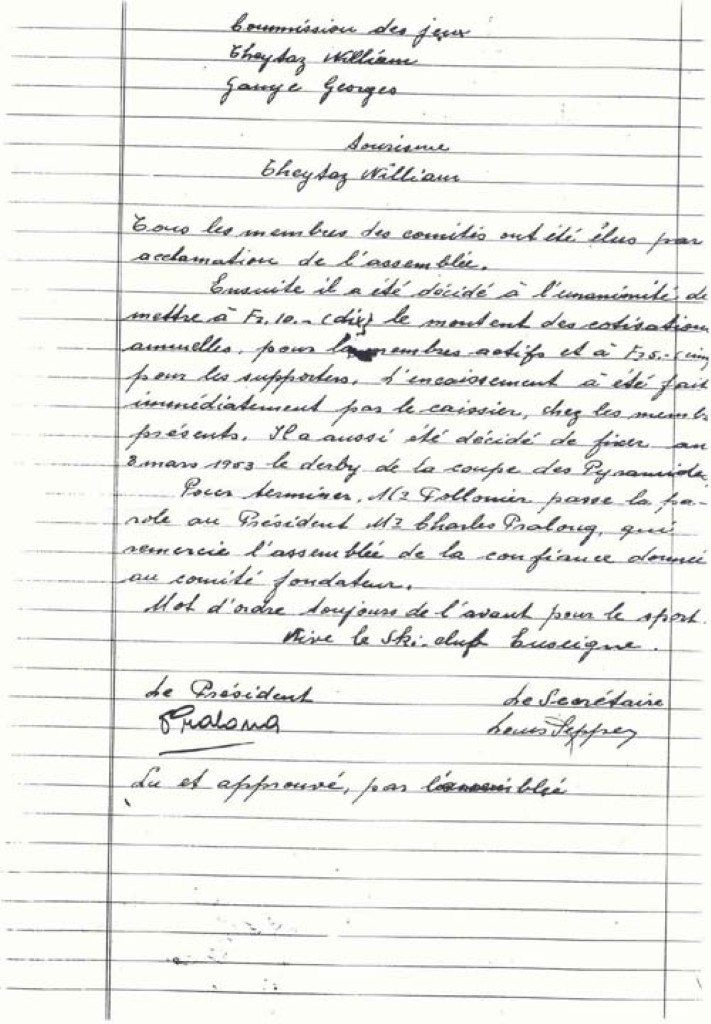 Commission des jeux
Theytaz William
Gauye Georges
Tourisme
Theytaz William
Tous les membres des comités ont été élus par
acclamation de l'assemblée.
Ensuite il a été décidé à l'unanimité de
mettre à Fr. 10.- (dix) le montent des cotisation
annuelles, pour les membres actifs et à Fr. 5.- (cinq
pour les supporters. L'encaissement à été fait
immédiatement par le caissier, chez les memb
présents. Il a aussi été décidé de fixer au
8 mars 1953 le derby de la coupe des Pyramides.
Pour terminer, Mr Follonier passe la pa-
role au Président Mr Charles Pralong, qui
remercie l'assemblée de la confiance donnée
au comité fondateur.
Mot d'ordre toujours de l'avant pour le sport.
Vive le Ski-club Euseigne.
Le Président Le Secrétaire
Pralong Louis Seppey
Lu et approuvé, par l'assemblée